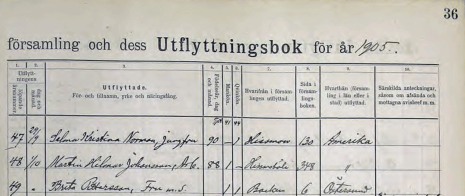 36
församling och dess Utflyttningsbok för år 1905.
1. 2. 3. 4. 5. 6. 7. 8. 9. 10.
Utflyttade.
För- och tillnamn, yrke och näringsfång.
Hvarifrån i församlingen utflyttad.
Sida i församlingsboken.
Hvarthän (församling i län eller i stad) utflyttad.
Särskilda anteckningar, såsom om afsända och mottagna avisobref m. m.
47 29/9 Selma Kristina Norman, Jungfru 90 1 Hissmon 130 Amerika
48 1/10 Martin Helmer Johansson, 88 1 348 "
49 " Brita Persson, Fru m. d. 1 Backen 6 Östersund